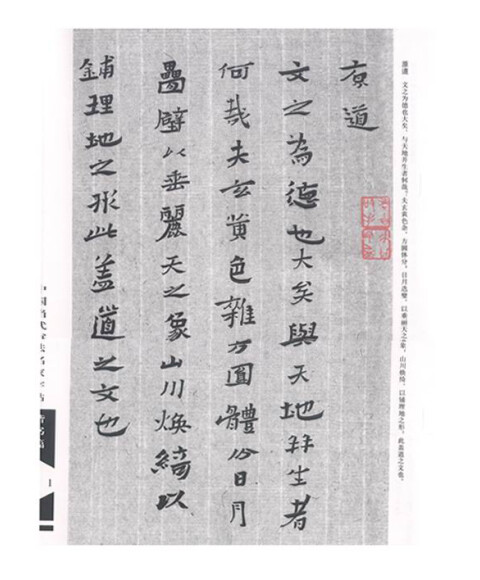 原道 文之为德也大矣，与天地并生者何哉。夫玄黄色杂，方圆体分，日月迭璧，以垂丽天之象，山川焕绮，以铺理地之形，此盖道之文也。
原道
文之為德也大矣與天地并生者
何哉夫玄黄色雜方圓體分日月
疊璧以垂麗天之象山川焕綺以
鋪理地之形此盖道之文也
1